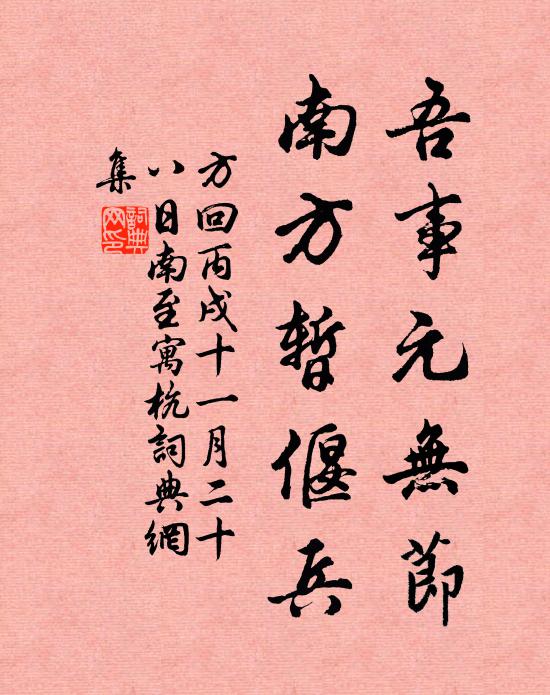 吾事元無節
南方暫偃兵
方回丙戌十一月二十
八日南至寓杭詞典網
集
詞典
网印